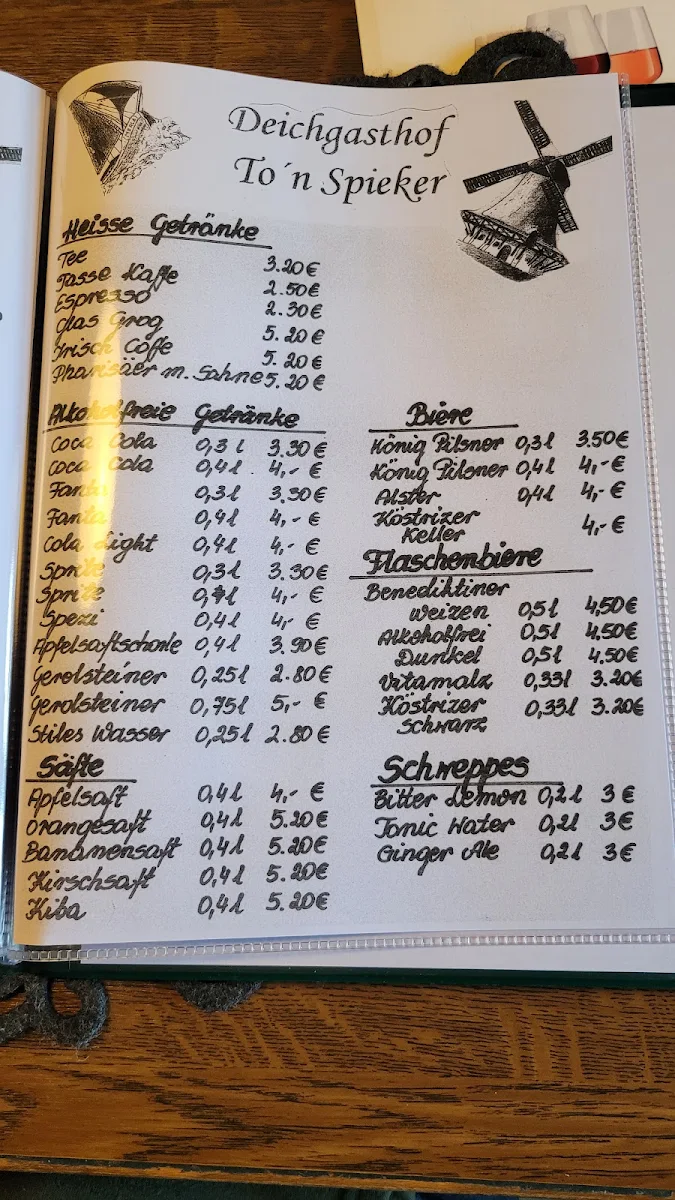 Deichgasthof
To´n Spieker
Heisse Getränke
Tee 3.20€
Tasse Kaffe 2.50€
Espresso 2.30€
Glas Grog 5.20€
Irisch Coffe 5.20€
Pharisäer m. Sahne 5.20€
Alkoholfreie Getränke
Coca Cola 0,3l 3.30€
Coca Cola 0,4l. 4,-€
Fanta 0,3l 3.30€
Fanta 0,4l 4,-€
Cola Light 0,4l 4,-€
Sprite 0,3l 3.30€
Sprite 0,4l 4,-€
Spezi 0,4l 4,-€
Apfelsaftschorle 0,4l 3.90€
Gerolsteiner 0,25l 2.80€
Gerolsteiner 0,75l 5,-€
Stiles Wasser 0,25l 2.80€
Säfte
Apfelsaft 0,4l 4,-€
Orangesaft 0,4l 5.20€
Bananensaft 0,4l 5.20€
Kirschsaft 0,4l 5.20€
Kiba 0,4l 5.20€
Biere
König Pilsner 0,3l 3.50€
König Pilsner 0,4l 4,-€
Alster 0,4l 4,-€
Köstrizer
Keller 4,-€
Flaschenbiere
Benediktiner
Weizen 0,5l 4,50€
Alkoholfrei 0,5l 4.50€
Dunkel 0,5l 4.50€
Vitamalz 0,33l 3.20€
Köstrizer 0,33l 3.20€
Schwarz
Schweppes
Bitter Lemon 0,2l 3€
Tonic Water 0,2l 3€
Ginger Ale 0,2l 3€